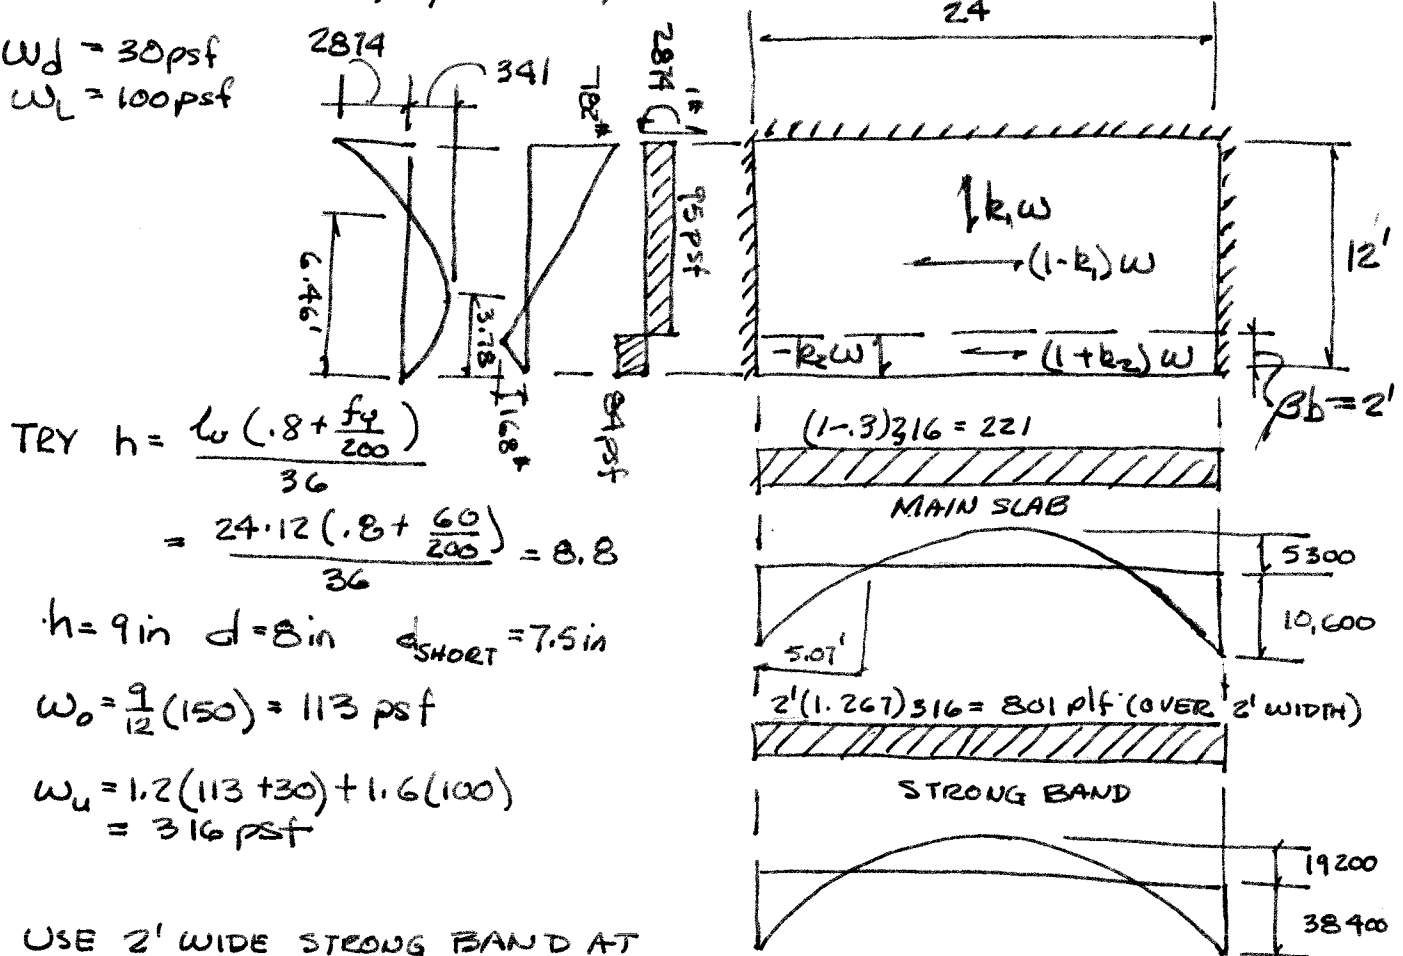 ωd = 30psf
ωL = 100psf
2874
341
782#
2874
1#
95psf
6.46'
3.78
168#
84psf
24
k₁ω
(1-k₁)ω
12'
-k₂ω
(1+k₂)ω
βb=2'
TRY h = lu(.8+fy/200)/36
= 24·12(.8+60/200)/36 = 8.8
h=9in d=8in dSHORT=7.5in
ω₀=9/12(150)=113 psf
ωu=1.2(113+30)+1.6(100)
= 316 psf
USE 2' WIDE STRONG BAND AT
(1-.3)316 = 221
MAIN SLAB
5300
10,600
5.07'
2'(1.267)316= 801 plf (OVER 2' WIDTH)
STRONG BAND
19200
38400